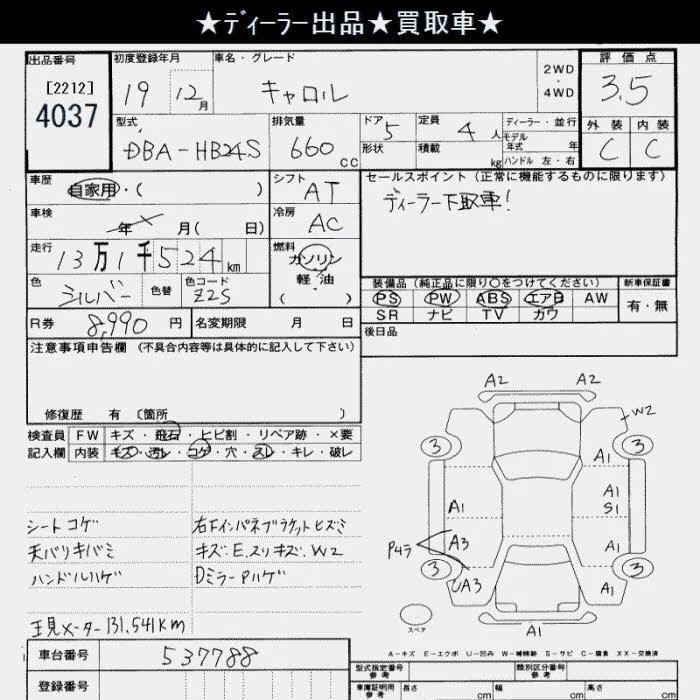 ★ディーラー出品★買取車★
出品番号 初度登録年月 車名・グレード 評価点
[2212] 19 12月 キャロル 2WD・4WD 3.5
4037
型式 排気量 ドア 定員 ディーラー・並行 外装 内装
DBA-HB24S 660cc 5 4人 モデル年式 年 C C
形状 積載 kg ハンドル 左・右
車歴 自家用・( ) シフト AT セールスポイント (正常に機能するものに限ります)
車検 年 月( 日) 冷房 AC ディーラー下取車!
走行 13万1千524km 燃料 ガソリン・軽油 ( )
色 シルバー 色替 色コード Z2S 装備品 (純正品に限り○をつけてください) 新車保証書
PS PW ABS エアB AW 有・無
SR ナビ TV カワ
R券 8,990円 名変期限 月 日 後日品
注意事項申告欄 (不具合内容等は具体的に記入して下さい)
修復歴 有 〔箇所 〕
検査員 FW キズ・飛石・ヒビ割・リペア跡・×要
記入欄 内装 キズ・汚レ・コゲ・穴・スレ・キレ・破レ
A2 A2
W2
3 3
A1
A1 A1
S1
P4ラ A3 A1
3 3
UA3 A1
スペア A1
シートコゲ 右Fインパネブラケットヒズミ
天バリキバミ キズ・E.スリキズ・W2
ハンドルハゲ DミラーPハゲ
現メーター131,541km
A-キズ E-エクボ U-凹み W-補修跡 S-サビ C-腐食 XX-交換済
車台番号 537788 型式指定番号 参考 類別区分番号 参考
登録番号 車庫証明用 参考 長さ cm 幅 cm 高さ cm